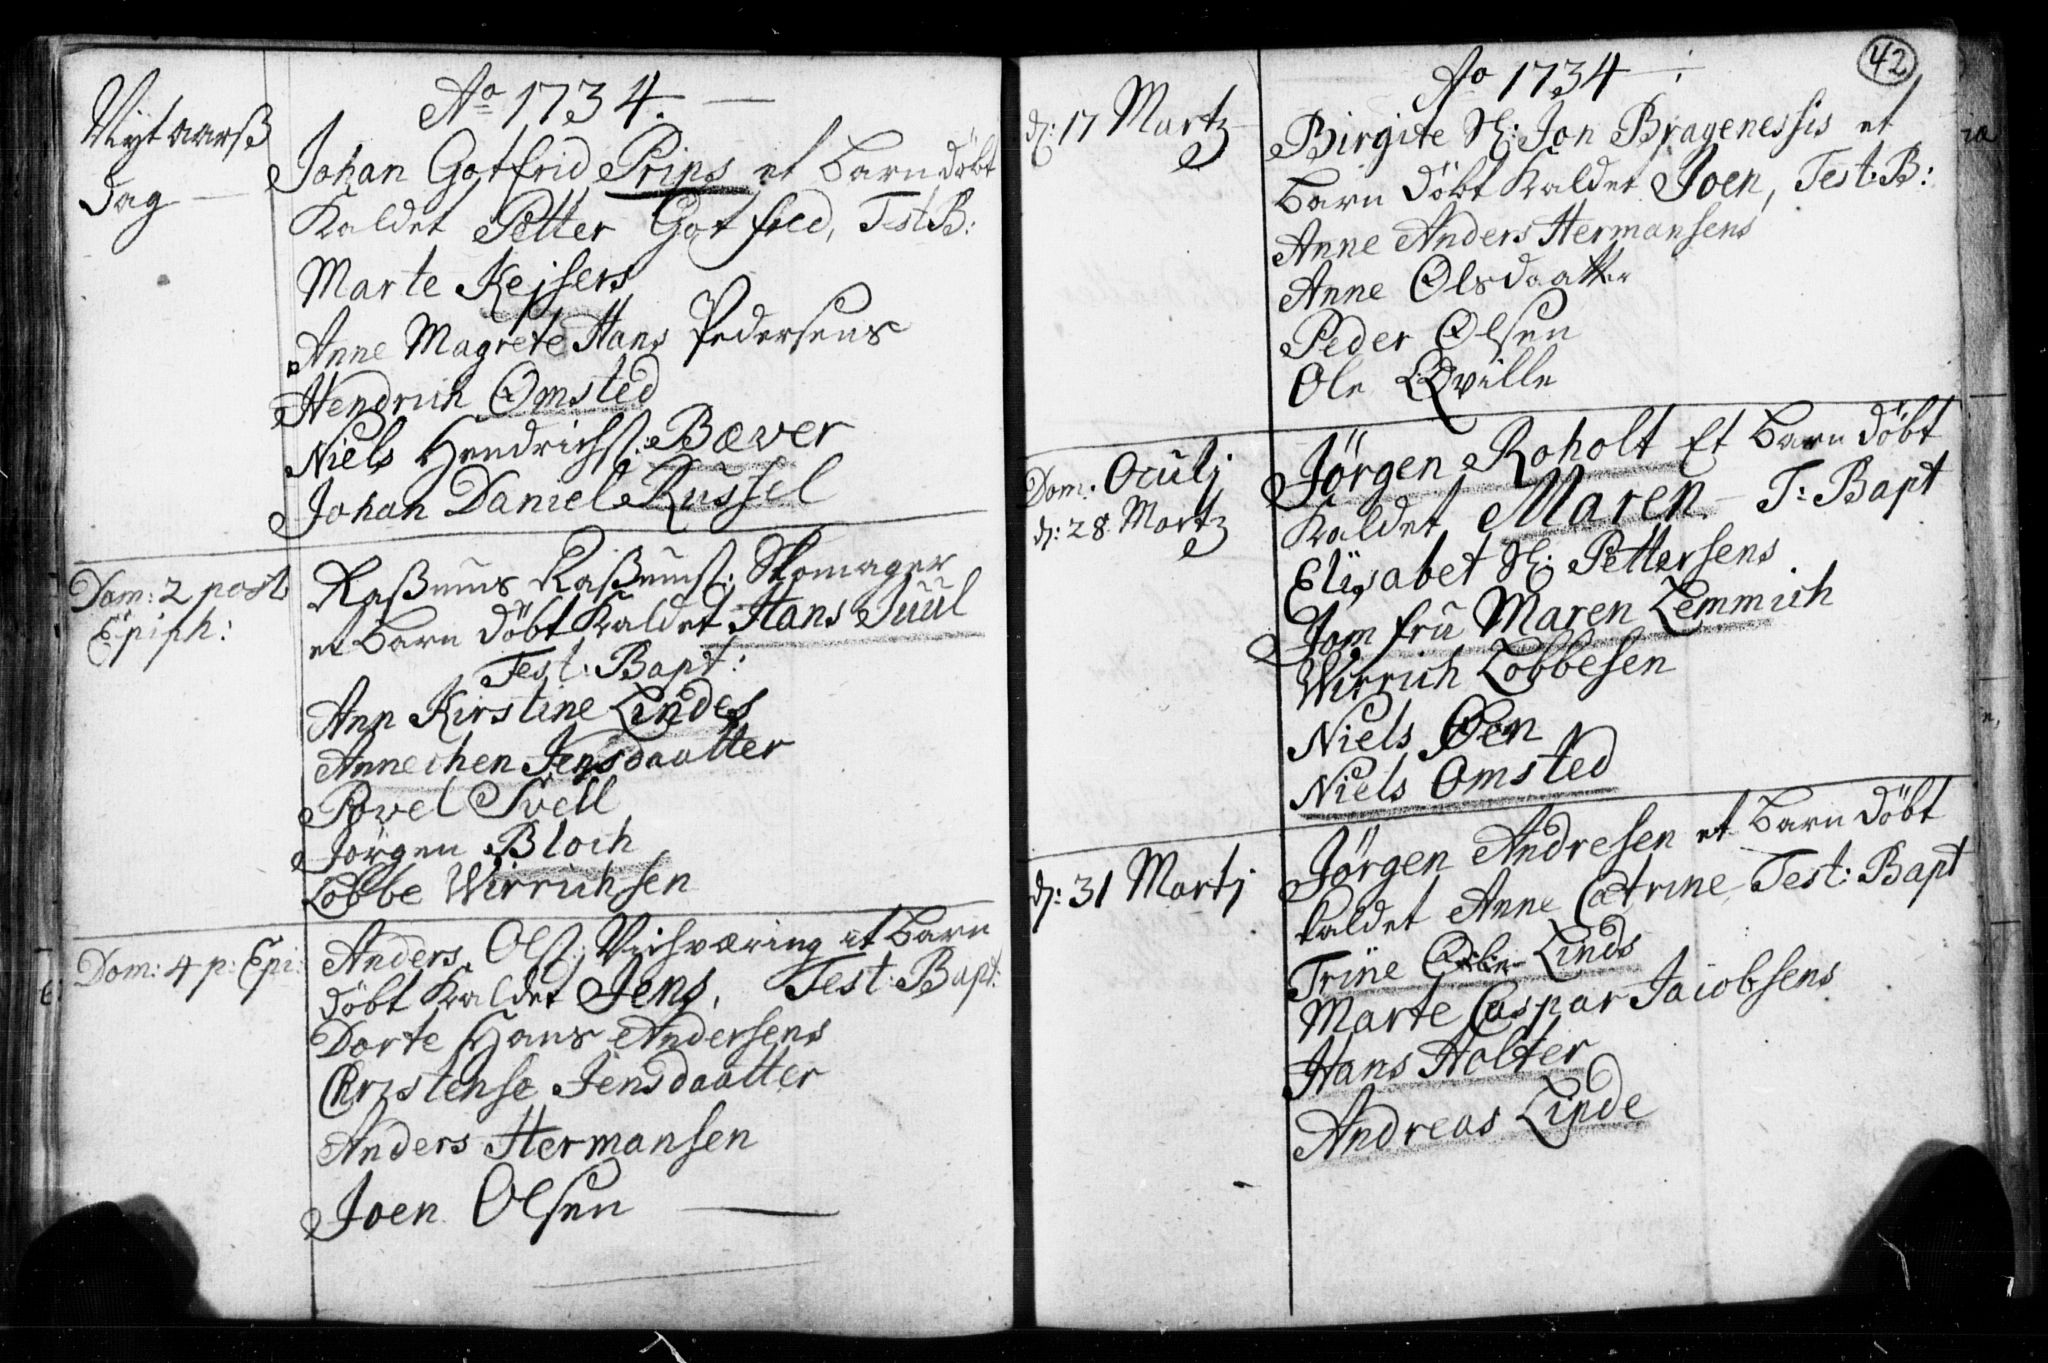 Ao 1734.
Nyt aarß
Dag
Johan Gotfrid Prips et barn döbt
Kaldet Petter Gotfred, Test B:
Marte Kejsers
Anne Magrete Hans Pedersens
Hendrich Omsted
Niels Hendrichs: Bæver
Johan Daniel Russel
Dom: 2 post
Epiph:
Raßmus Raßmus: Skomager
et barn döbt Kaldet Hans Juul
Test: Bapt:
Ann Kirstine Lindes
Annechen Jensdaatter
Povel Svell
Jörgen Bloch
Lobbe Wirrichsen
Dom: 4 p: Epi:
Anders Ols: et barn
döbt Kaldet Jens, Test: Bapt:
Dorte Hans Andersens
Christense Jensdaatter
Anders Hermansen
Joen Olsen
42
Ao 1734
d: 17 Martz
Birgite Sl: Jon Bragenessis et
barn döbt Kaldet Joen, Test: B:
Anne Anders Hermansens
Anne Olsdaatter
Peder Olsen
Ole Qville
Dom: Oculj
d: 28 Martz
Jörgen Roholt Et barn döbt
Kaldet Maren T: Bapt
Elisabet Sl: Pettersens
Jomfru Maren Lemmich
Wirrich Lobbesen
Niels Öen
Niels Omsted
d: 31 Martj
Jörgen Andresen et barn döbt
kaldet Anne Catrine Test: Bapt
Trine Linds
Marte Caspar Jacobsens
Hans Holter
Andreas Linde